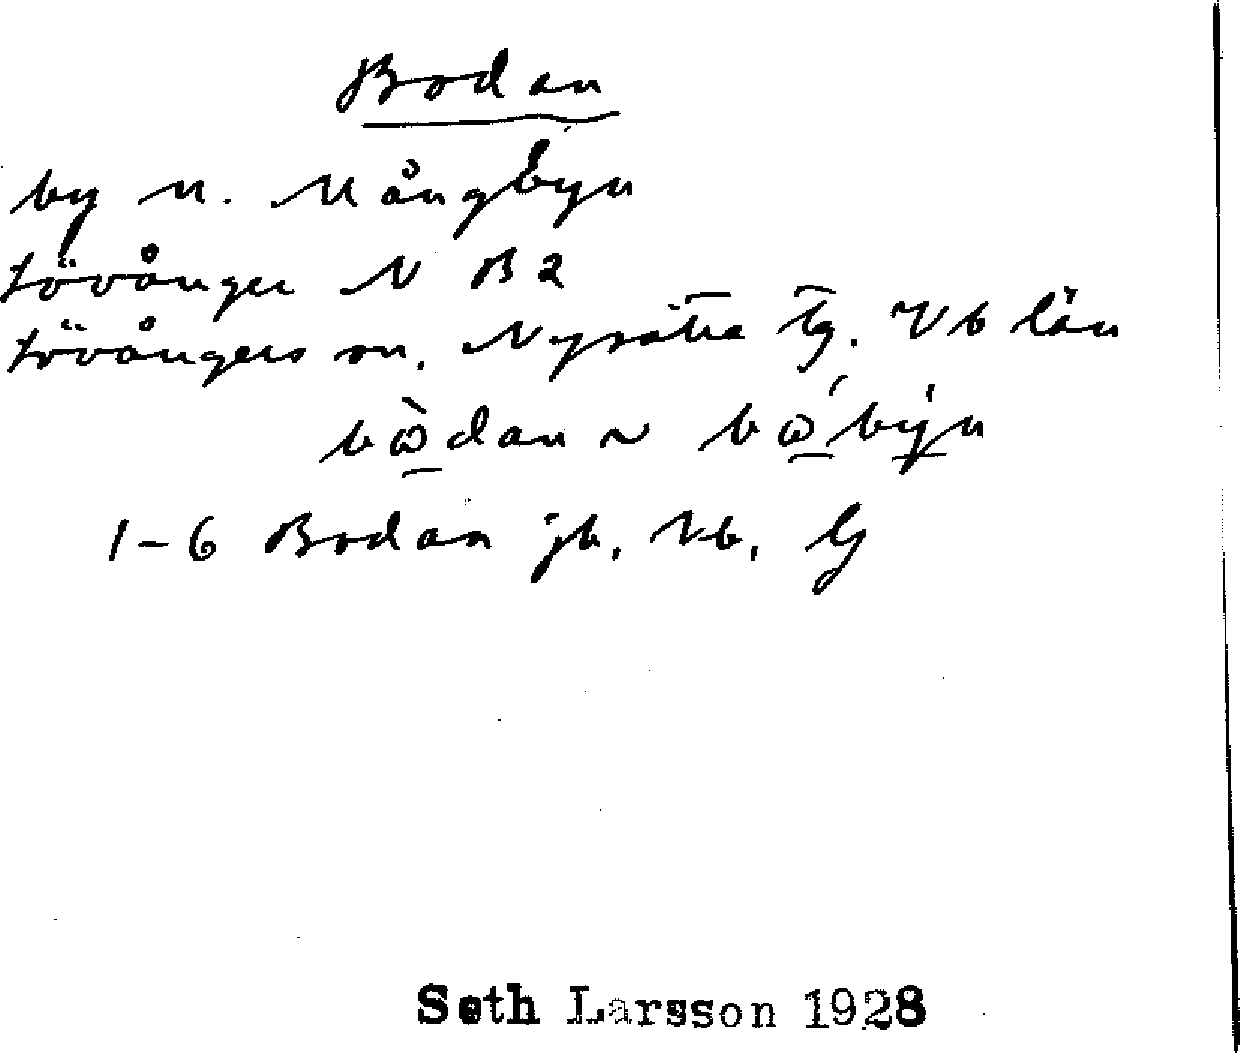 Bodan
by n. Mångbyn
Lövånger N B 2
Lövångers sn. Nysätra Tg. Vb län
bὼ̱dan ~ bώ̱bẏ̱n
1-6 Bodan jb, Vb, G
Seth Larsson 1928